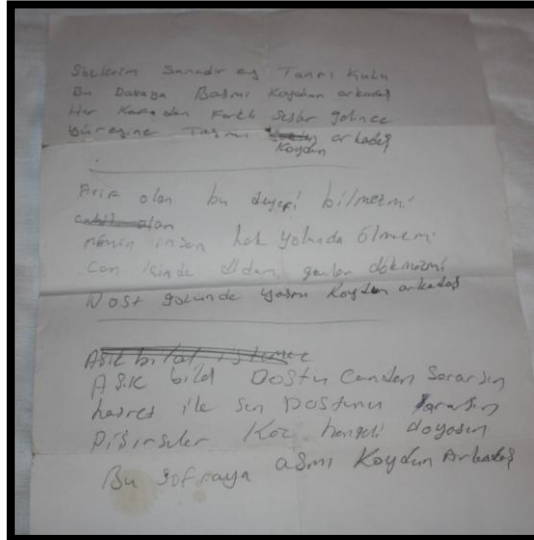 Sözlerim Sanadır ey Tanrı Kulu
Bu Davaya Başmı Koydun arkadaş
Her Kafadan Farklı Sesler gelince
Yüreğine Taşmı arkadaş
Koydun
Arif olan bu deyeri bilmezmi
cahil olan
mümin insan hak yolunda ölmezmi
Can içinde didem dökmezmi
Dost gözünde yaşmı Koydun arkadaş
Aşık bilal istemez
AŞIK bilal Dostu Candan Sorarsın
hasret ile sen Dostunu ararsın
Pişirseler doyarsın
Bu sofraya aşmı Koydun Arkadaş